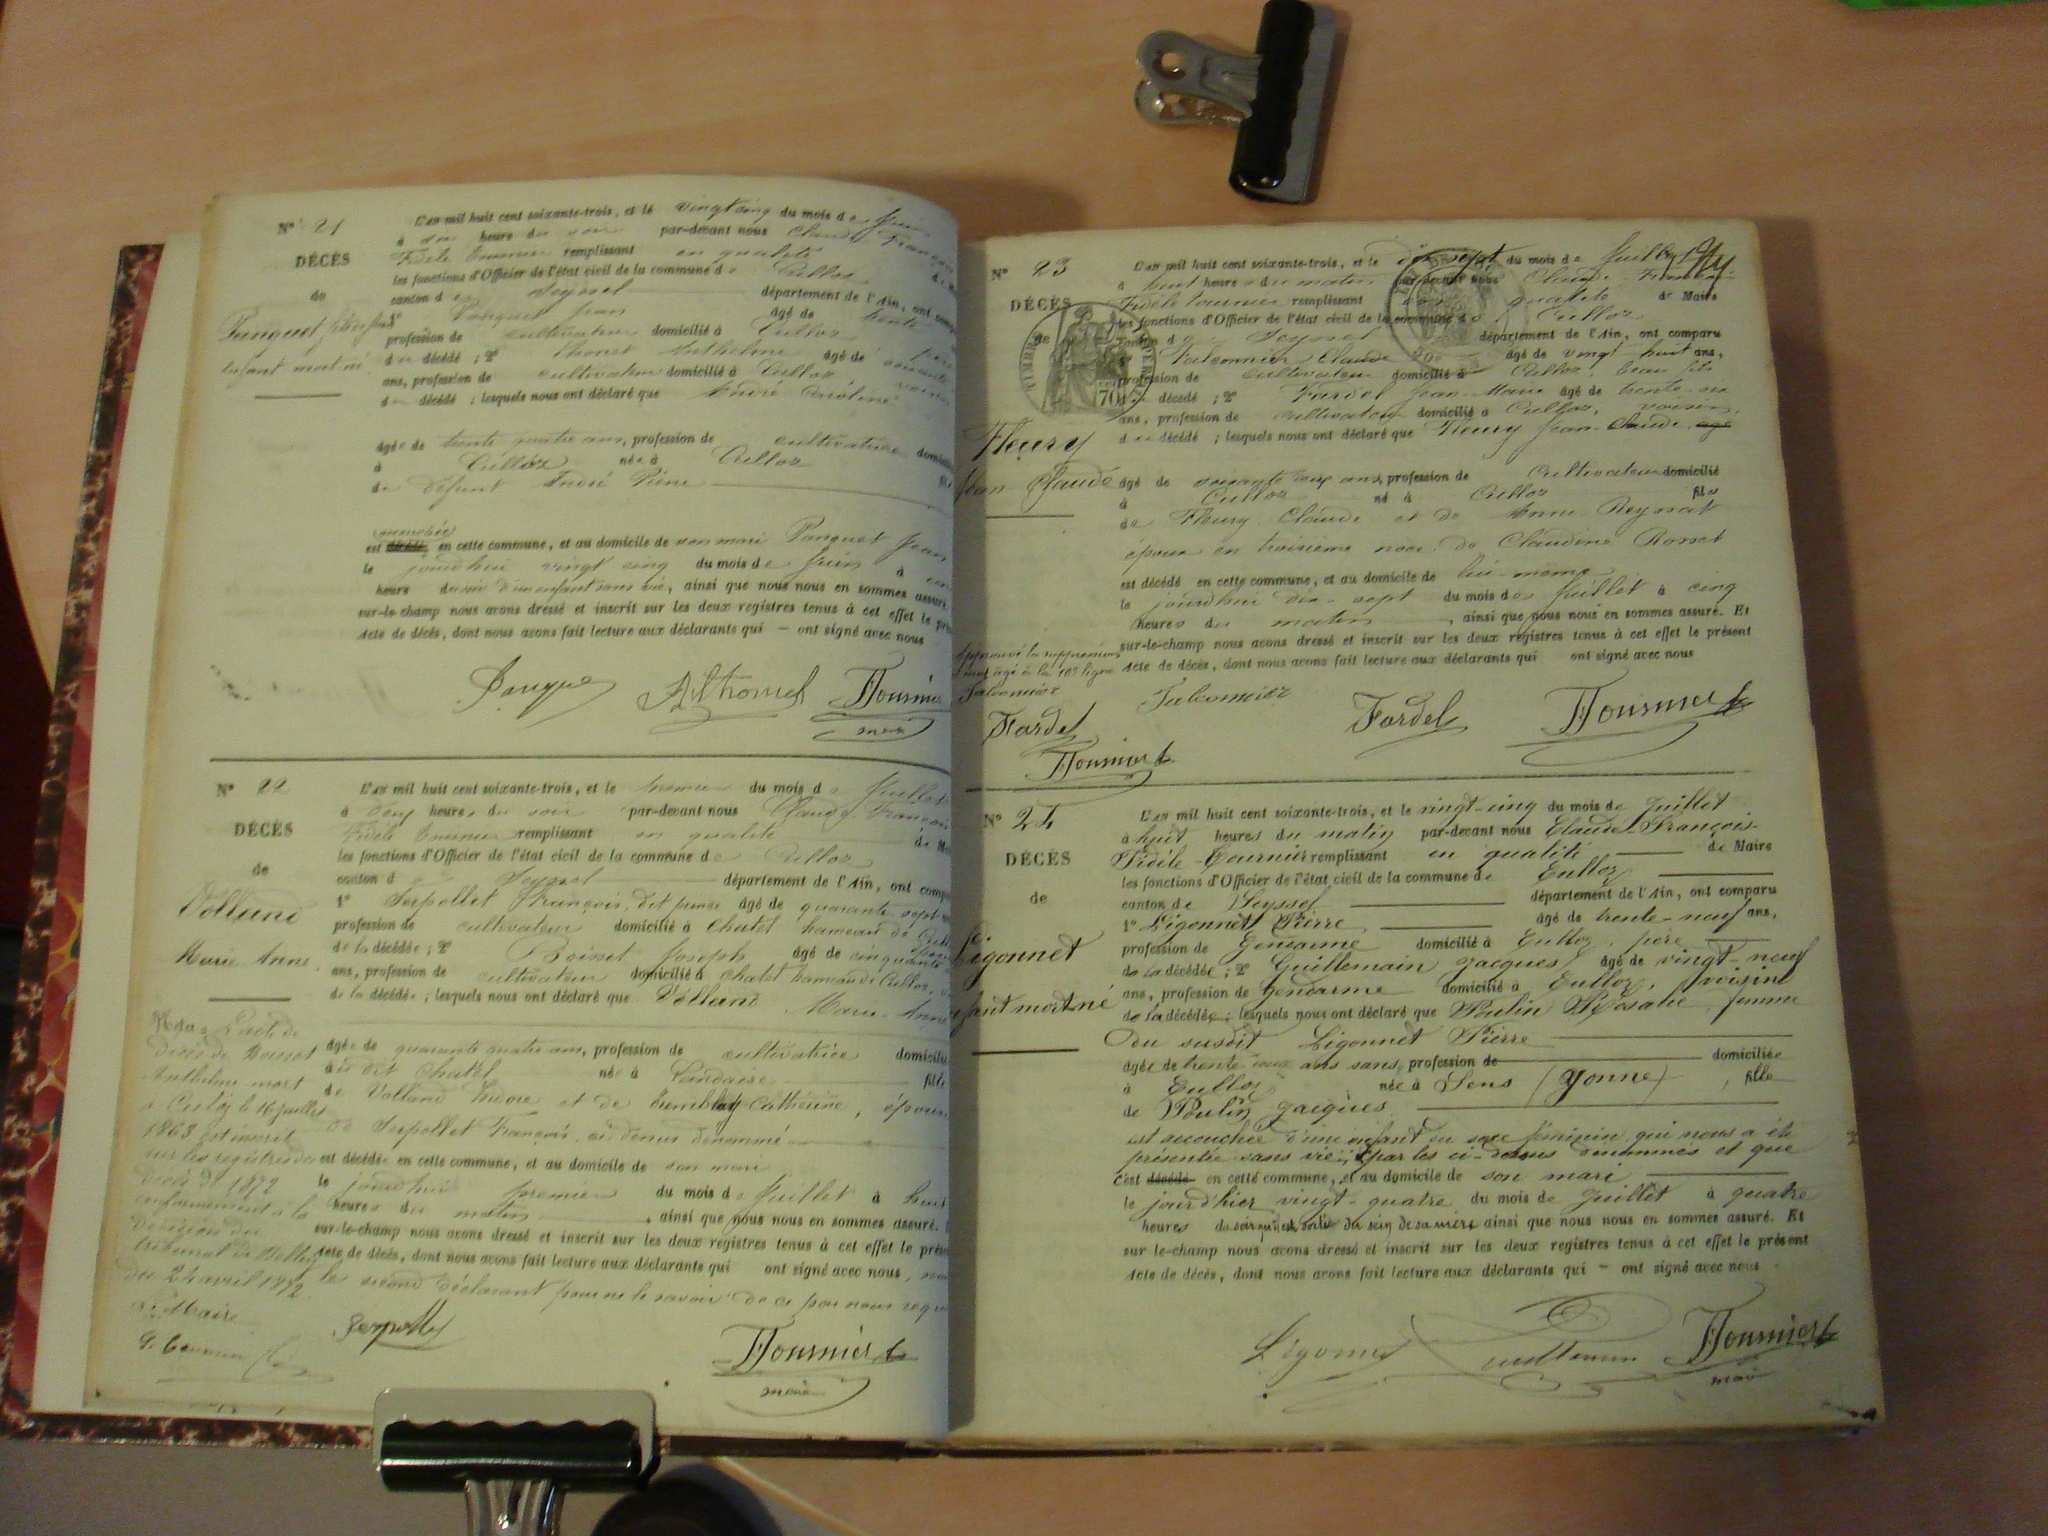 N° 21
DÉCÈS
de
enfant mort-né
L'an mil huit cent soixante-trois, et le vingt cinq du mois de Juin
à heure du soir par-devant nous Claude François
Fidèle Tournier remplissant en qualité
les fonctions d'Officier de l'état civil de la commune de Culloz
canton de Seyssel département de l'Ain, ont
1° Panquet Jean âgé de trente
profession de cultivateur domicilié à Culloz
d décédé ; 2° Thomet Anthelme âgé de soixante
ans, profession de cultivateur domicilié à Culloz voisin
d décédé ; lesquels nous ont déclaré que André Caroline
âgée de trente quatre ans, profession de cultivatrice
à Culloz née à Culloz
de défunt André Pierre
est décédé en cette commune, et au domicile de son mari Panquet Jean
le jourd'hui vingt cinq du mois de Juin à
heures du soir d'un enfant sans vie, ainsi que nous nous en sommes assuré.
sur-le-champ nous avons dressé et inscrit sur les deux registres tenus à cet effet le
Acte de décès, dont nous avons fait lecture aux déclarants qui — ont signé avec nous
Tournier
maire
N° 22
DÉCÈS
de
Volland
Marie Anne
L'an mil huit cent soixante-trois, et le premier du mois de Juillet
à heures du soir par-devant nous Claude François
Fidèle Tournier remplissant en qualité de
les fonctions d'Officier de l'état civil de la commune de Culloz
canton d Seyssel département de l'Ain, ont
1° Serpollet François, dit âgé de quarante sept
profession de cultivateur domicilié à Chatel hameau de
de la décédée ; 2° Boisset Joseph âgé de cinquante
ans, profession de cultivateur domicilié à Chatel hameau de Culloz,
de la décédée ; lesquels nous ont déclaré que Volland Marie Anne
âgée de quarante quatre ans, profession de cultivatrice
dit Chatel née à fille
de Volland et de Catherine, épouse
de Serpollet François, ci-dessus dénommé
est décédée en cette commune, et au domicile de son mari
le jourd'hui premier du mois de Juillet à huit
heures du matin, ainsi que nous nous en sommes assuré.
sur-le-champ nous avons dressé et inscrit sur les deux registres tenus à cet effet le
Acte de décès, dont nous avons fait lecture aux déclarants qui ont signé avec nous,
le second déclarant pour ne le savoir de ce par nous
L'acte de
décès de
Anthelme mort
à Culoz le 16 juillet
1863 est inscrit
sur les registres de
décès de 1872
conformément à la
décision du
tribunal de Belley
du 24 avril 1872
Maire
Tournier
maire
N° 23
DÉCÈS
de
TIMBRE
70
Fleury
Jean Claude
L'an mil huit cent soixante-trois, et le dix sept du mois de Juillet
à huit heures du matin par-devant nous Claude François
Fidèle Tournier remplissant en qualité de Maire
les fonctions d'Officier de l'état civil de la commune de Culloz
canton de Seyssel département de l'Ain, ont comparu
Falconnier Claude âgé de vingt huit ans,
profession de cultivateur domicilié à Culloz, beau fils
du décédé ; 2° Fardel Jean Marie âgé de trente
ans, profession de cultivateur domicilié à Culloz, voisin
du décédé ; lesquels nous ont déclaré que Fleury Jean-Claude âgé
âgé de soixante ans, profession de Cultivateur domicilié
à Culloz né à Culloz fils
de Fleury Claude et de Anne Reyssat
époux en troisième noce de Claudine Rosset
est décédé en cette commune, et au domicile de lui-même
le jourd'hui dix-sept du mois de Juillet à cinq
heures du matin, ainsi que nous nous en sommes assuré. Et
sur-le-champ nous avons dressé et inscrit sur les deux registres tenus à cet effet le présent
Acte de décès, dont nous avons fait lecture aux déclarants qui ont signé avec nous
Approuvé la suppression
mot âgé à la 10e ligne
Falconnier
Falconnier Fardel Tournier
Fardel
Tournier
N° 24
DÉCÈS
de
Ligonnet
enfant mort né
L'an mil huit cent soixante-trois, et le vingt-cinq du mois de Juillet
à huit heures du matin par-devant nous Claude-François-
Fidèle-Tournier remplissant en qualité de Maire
les fonctions d'Officier de l'état civil de la commune de Culloz
canton de Seyssel département de l'Ain, ont comparu
1° Ligonnet Pierre âgé de trente-neuf ans,
profession de Gendarme domicilié à Culloz, père
de la décédée ; 2° Guillemain Jacques âgé de vingt-neuf
ans, profession de Gendarme domicilié à Culloz, voisin
de la décédée ; lesquels nous ont déclaré que Poulin Rosalie, femme
du susdit Ligonnet Pierre
âgée de trente deux ans sans profession de domiciliée
à Culloz née à Sens (Yonne), fille
de Poulin Jacques
est accouchée d'une enfant du sexe féminin qui nous a été
présentée sans vie par les ci-dessus dénommés et que
c'est décédé en cette commune, et au domicile de son mari
le jourd'hier vingt-quatre du mois de Juillet à quatre
heures du soir qu'est sortie du sein de sa mère ainsi que nous nous en sommes assuré. Et
sur-le-champ nous avons dressé et inscrit sur les deux registres tenus à cet effet le présent
Acte de décès, dont nous avons fait lecture aux déclarants qui — ont signé avec nous
Ligonnet Guillemain Tournier
maire